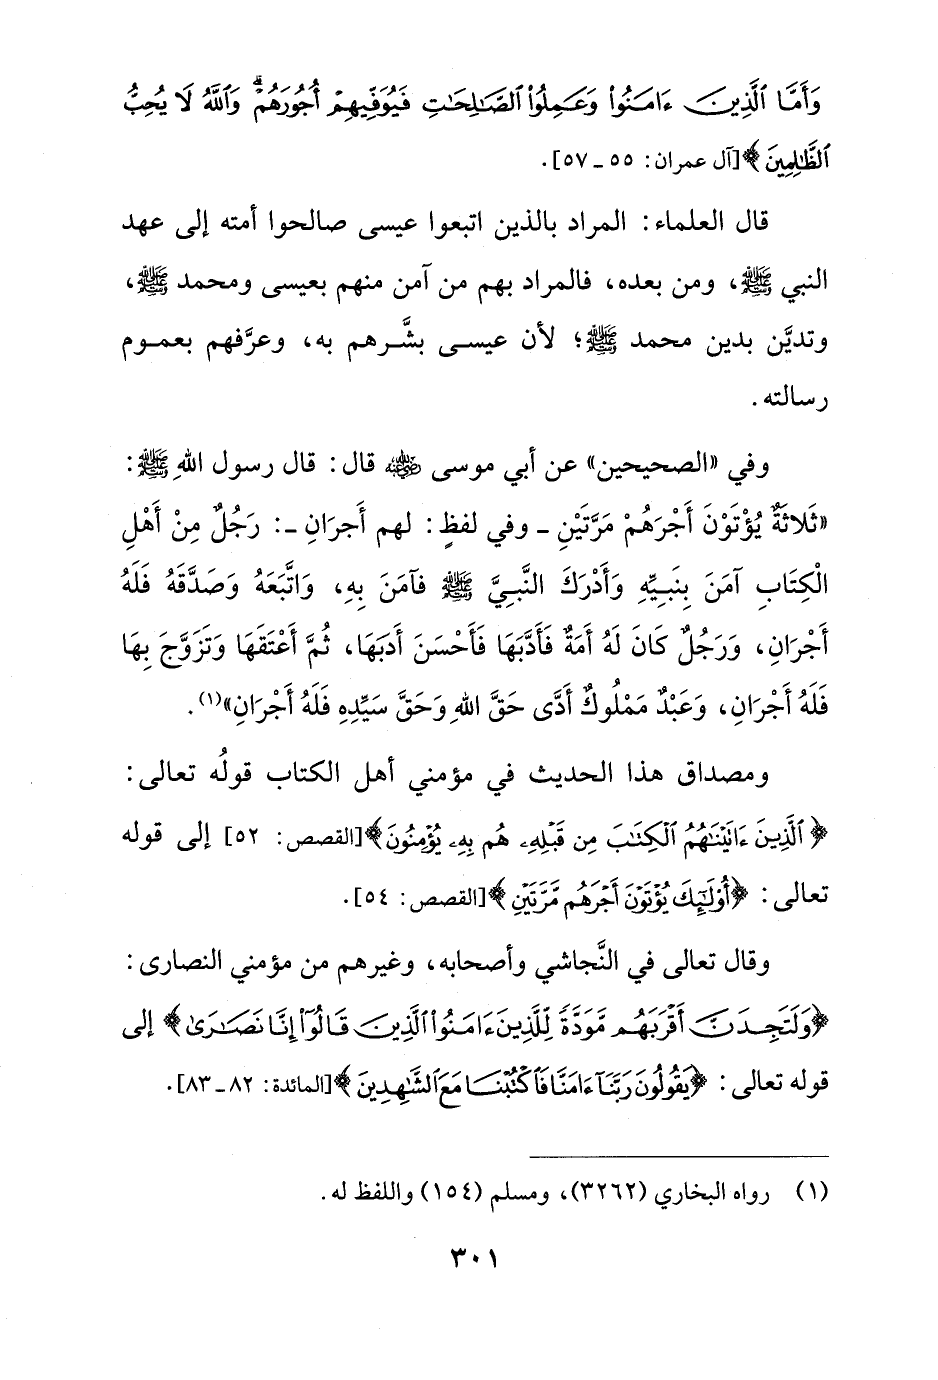 وَأَمَّا ٱلَّذِينَ ءَامَنُوا۟ وَعَمِلُوا۟ ٱلصَّٰلِحَٰتِ فَيُوَفِّيهِمْ أُجُورَهُمْ ۗ وَٱللَّهُ لَا يُحِبُّ
ٱلظَّٰلِمِينَ﴾[آل عمران: ٥٥ ـ ٥٧].
قال العلماء: المراد بالذين اتبعوا عيسى صالحوا أمته إلى عهد
النبي ﷺ، ومن بعده، فالمراد بهم من آمن منهم بعيسى ومحمد ﷺ،
وتديَّن بدين محمد ﷺ؛ لأن عيسى بشَّرهم به، وعرَّفهم بعموم
رسالته.
وفي «الصحيحين» عن أبي موسى رضي الله عنه قال: قال رسول اللهِ ﷺ:
«ثَلاثَةٌ يُؤْتَوْنَ أَجْرَهُمْ مَرَّتَيْنِ ـ وفي لفظٍ: لهم أَجرَانِ ـ: رَجُلٌ مِنْ أَهْلِ
الْكِتَابِ آمَنَ بِنَبِيِّهِ وَأَدْرَكَ النَّبِيَّ ﷺ فآمَنَ بِهِ، وَاتَّبَعَهُ وَصَدَّقَهُ فَلَهُ
أَجْرَانِ، وَرَجُلٌ كَانَ لَهُ أَمَةٌ فَأَدَّبَهَا فَأَحْسَنَ أَدَبَهَا، ثُمَّ أَعْتَقَهَا وَتَزَوَّجَ بِهَا
فَلَهُ أَجْرَانِ، وَعَبْدٌ مَمْلُوكٌ أَدَّى حَقَّ اللهِ وَحَقَّ سَيِّدِهِ فَلَهُ أَجْرَانِ»(١).
ومصداق هذا الحديث في مؤمني أهل الكتاب قولُه تعالى:
﴿ٱلَّذِينَ ءَاتَيْنَٰهُمُ ٱلْكِتَٰبَ مِن قَبْلِهِۦ هُم بِهِۦ يُؤْمِنُونَ﴾[القصص: ٥٢] إلى قوله
تعالى: ﴿أُو۟لَٰٓئِكَ يُؤْتَوْنَ أَجْرَهُم مَّرَّتَيْنِ﴾[القصص: ٥٤].
وقال تعالى في النَّجاشي وأصحابه، وغيرهم من مؤمني النصارى:
﴿وَلَتَجِدَنَّ أَقْرَبَهُم مَّوَدَّةً لِّلَّذِينَ ءَامَنُوا۟ ٱلَّذِينَ قَالُوٓا۟ إِنَّا نَصَٰرَىٰ﴾ إلى
قوله تعالى: ﴿يَقُولُونَ رَبَّنَآ ءَامَنَّا فَٱكْتُبْنَا مَعَ ٱلشَّٰهِدِينَ﴾[المائدة: ٨٢ ـ ٨٣].
(١) رواه البخاري (٣٢٦٢)، ومسلم (١٥٤) واللفظ له.
٣٠١